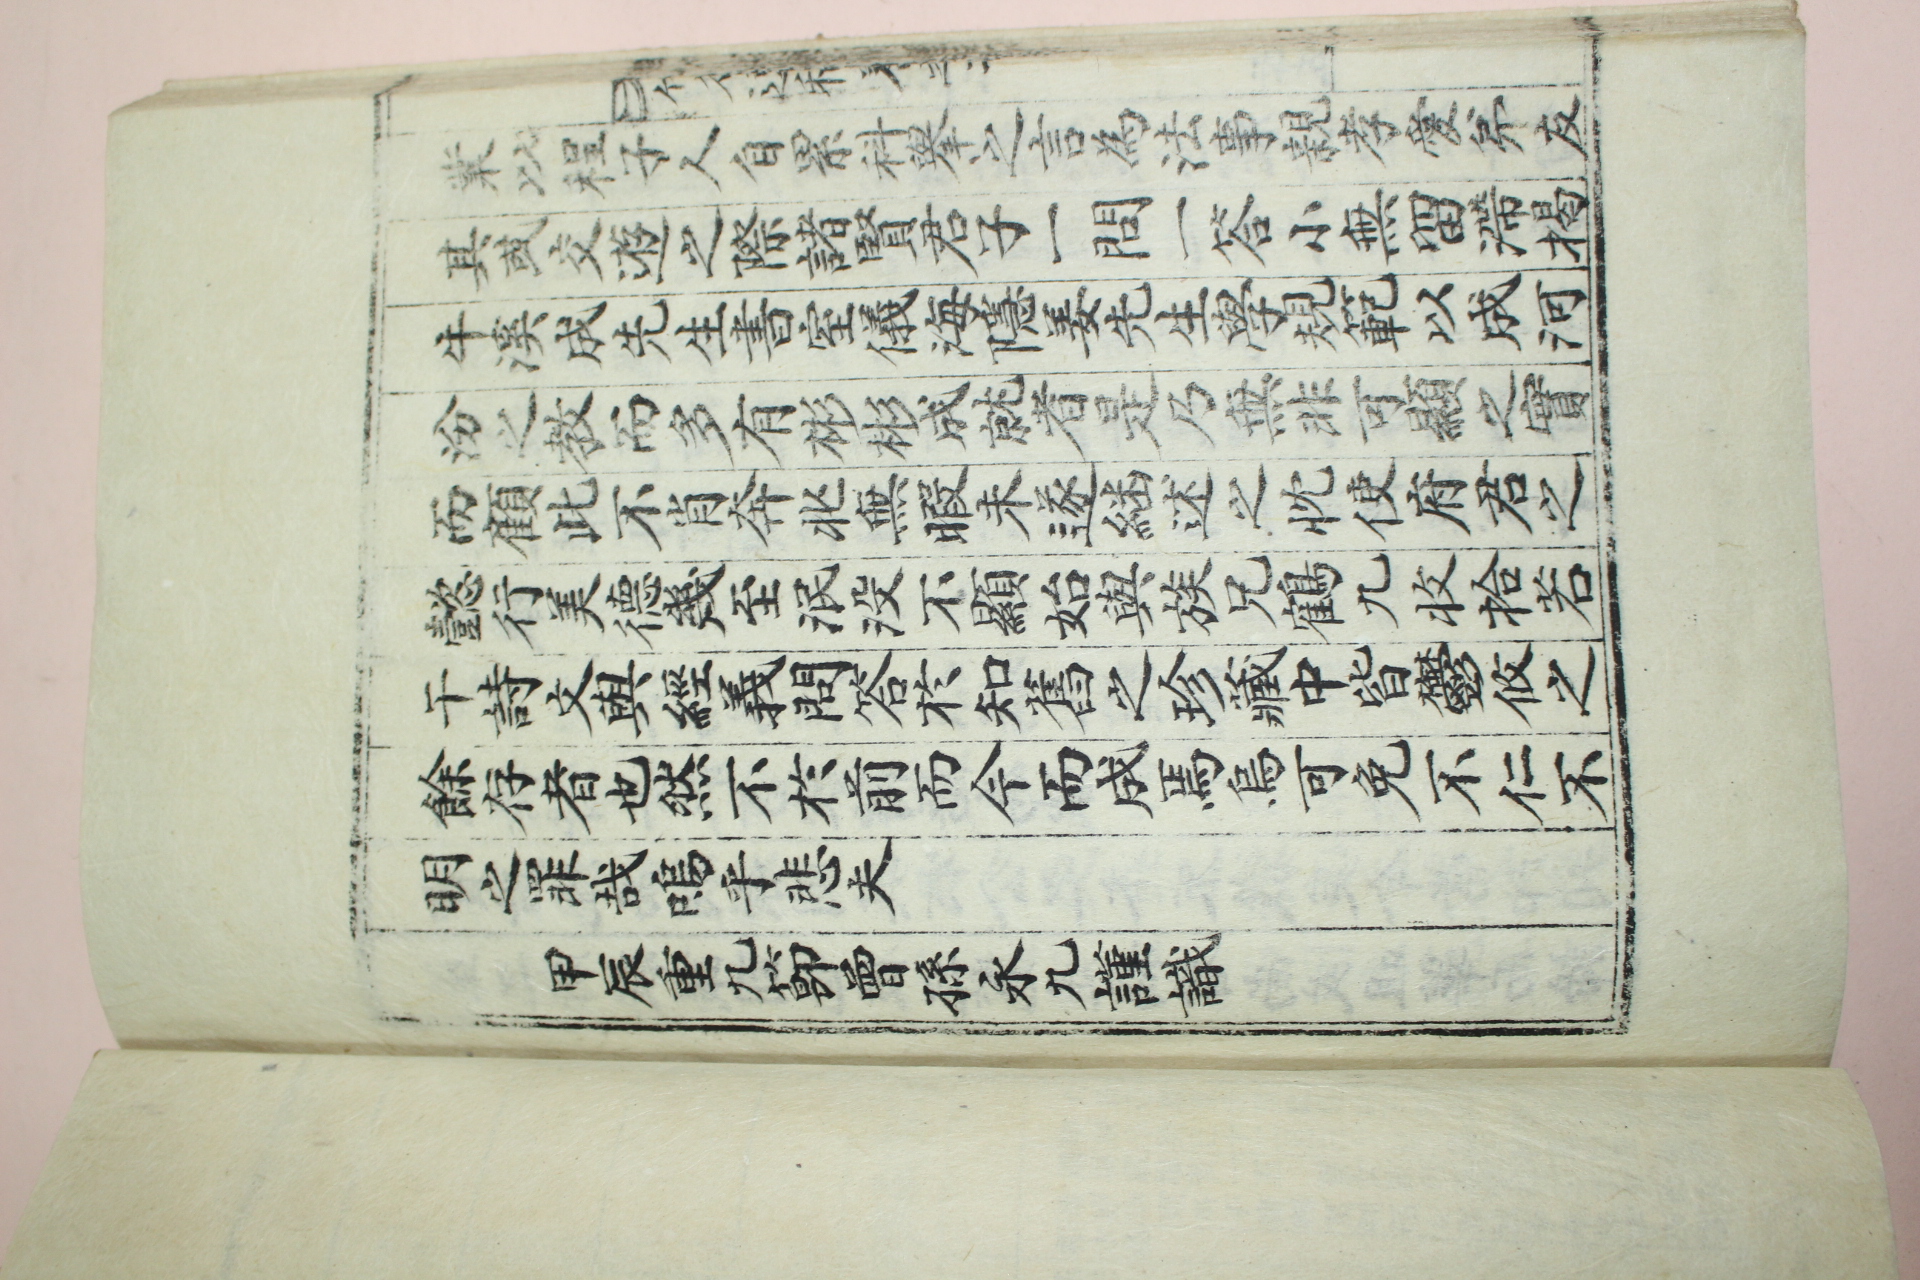 業以程子人自累科擧之言爲法事親孝愛弟友
其或交遊之際諸賢君子一問一答小無留滯揭
牛溪成先生書室儀海隱姜先生學規範以成河
汾之敎而多有彬彬成就者是乃無非可顯之實
而顧此不肖奔北無暇未遂継述之忱使府君之
懿行美德幾至泯沒不顯始與族兄鶴九收拾若
干詩文與經義問答於知舊之珍藏中皆鬱攸之
餘存者也然不於前而今而成焉烏可免不仁不
明之罪哉嗚乎悲夫
甲辰重九節曾孫永九謹識